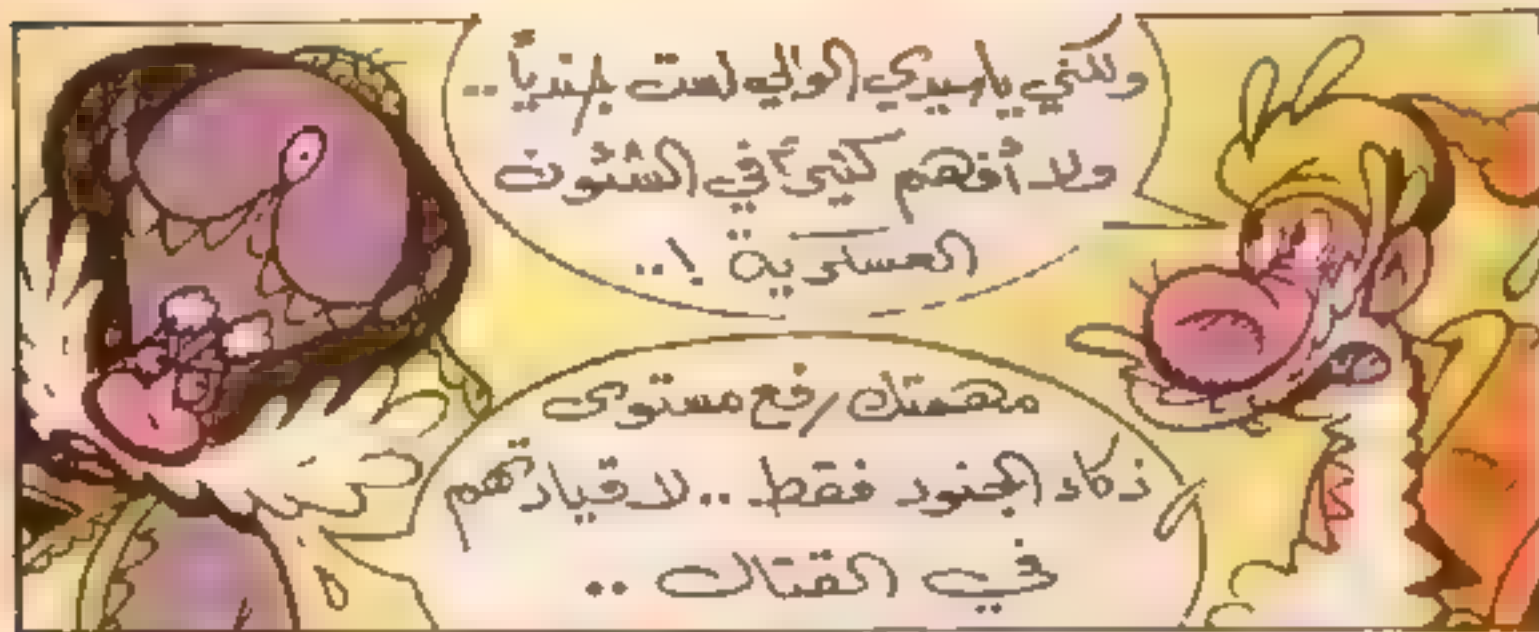 ولكني يا سيدي الوالي لست جندياً ..
ولا أفهم كثيراً في الشئون
العسكرية !..
مهمتك رفع مستوى
ذكاء الجنود فقط .. لا قيادتهم
في القتال ..